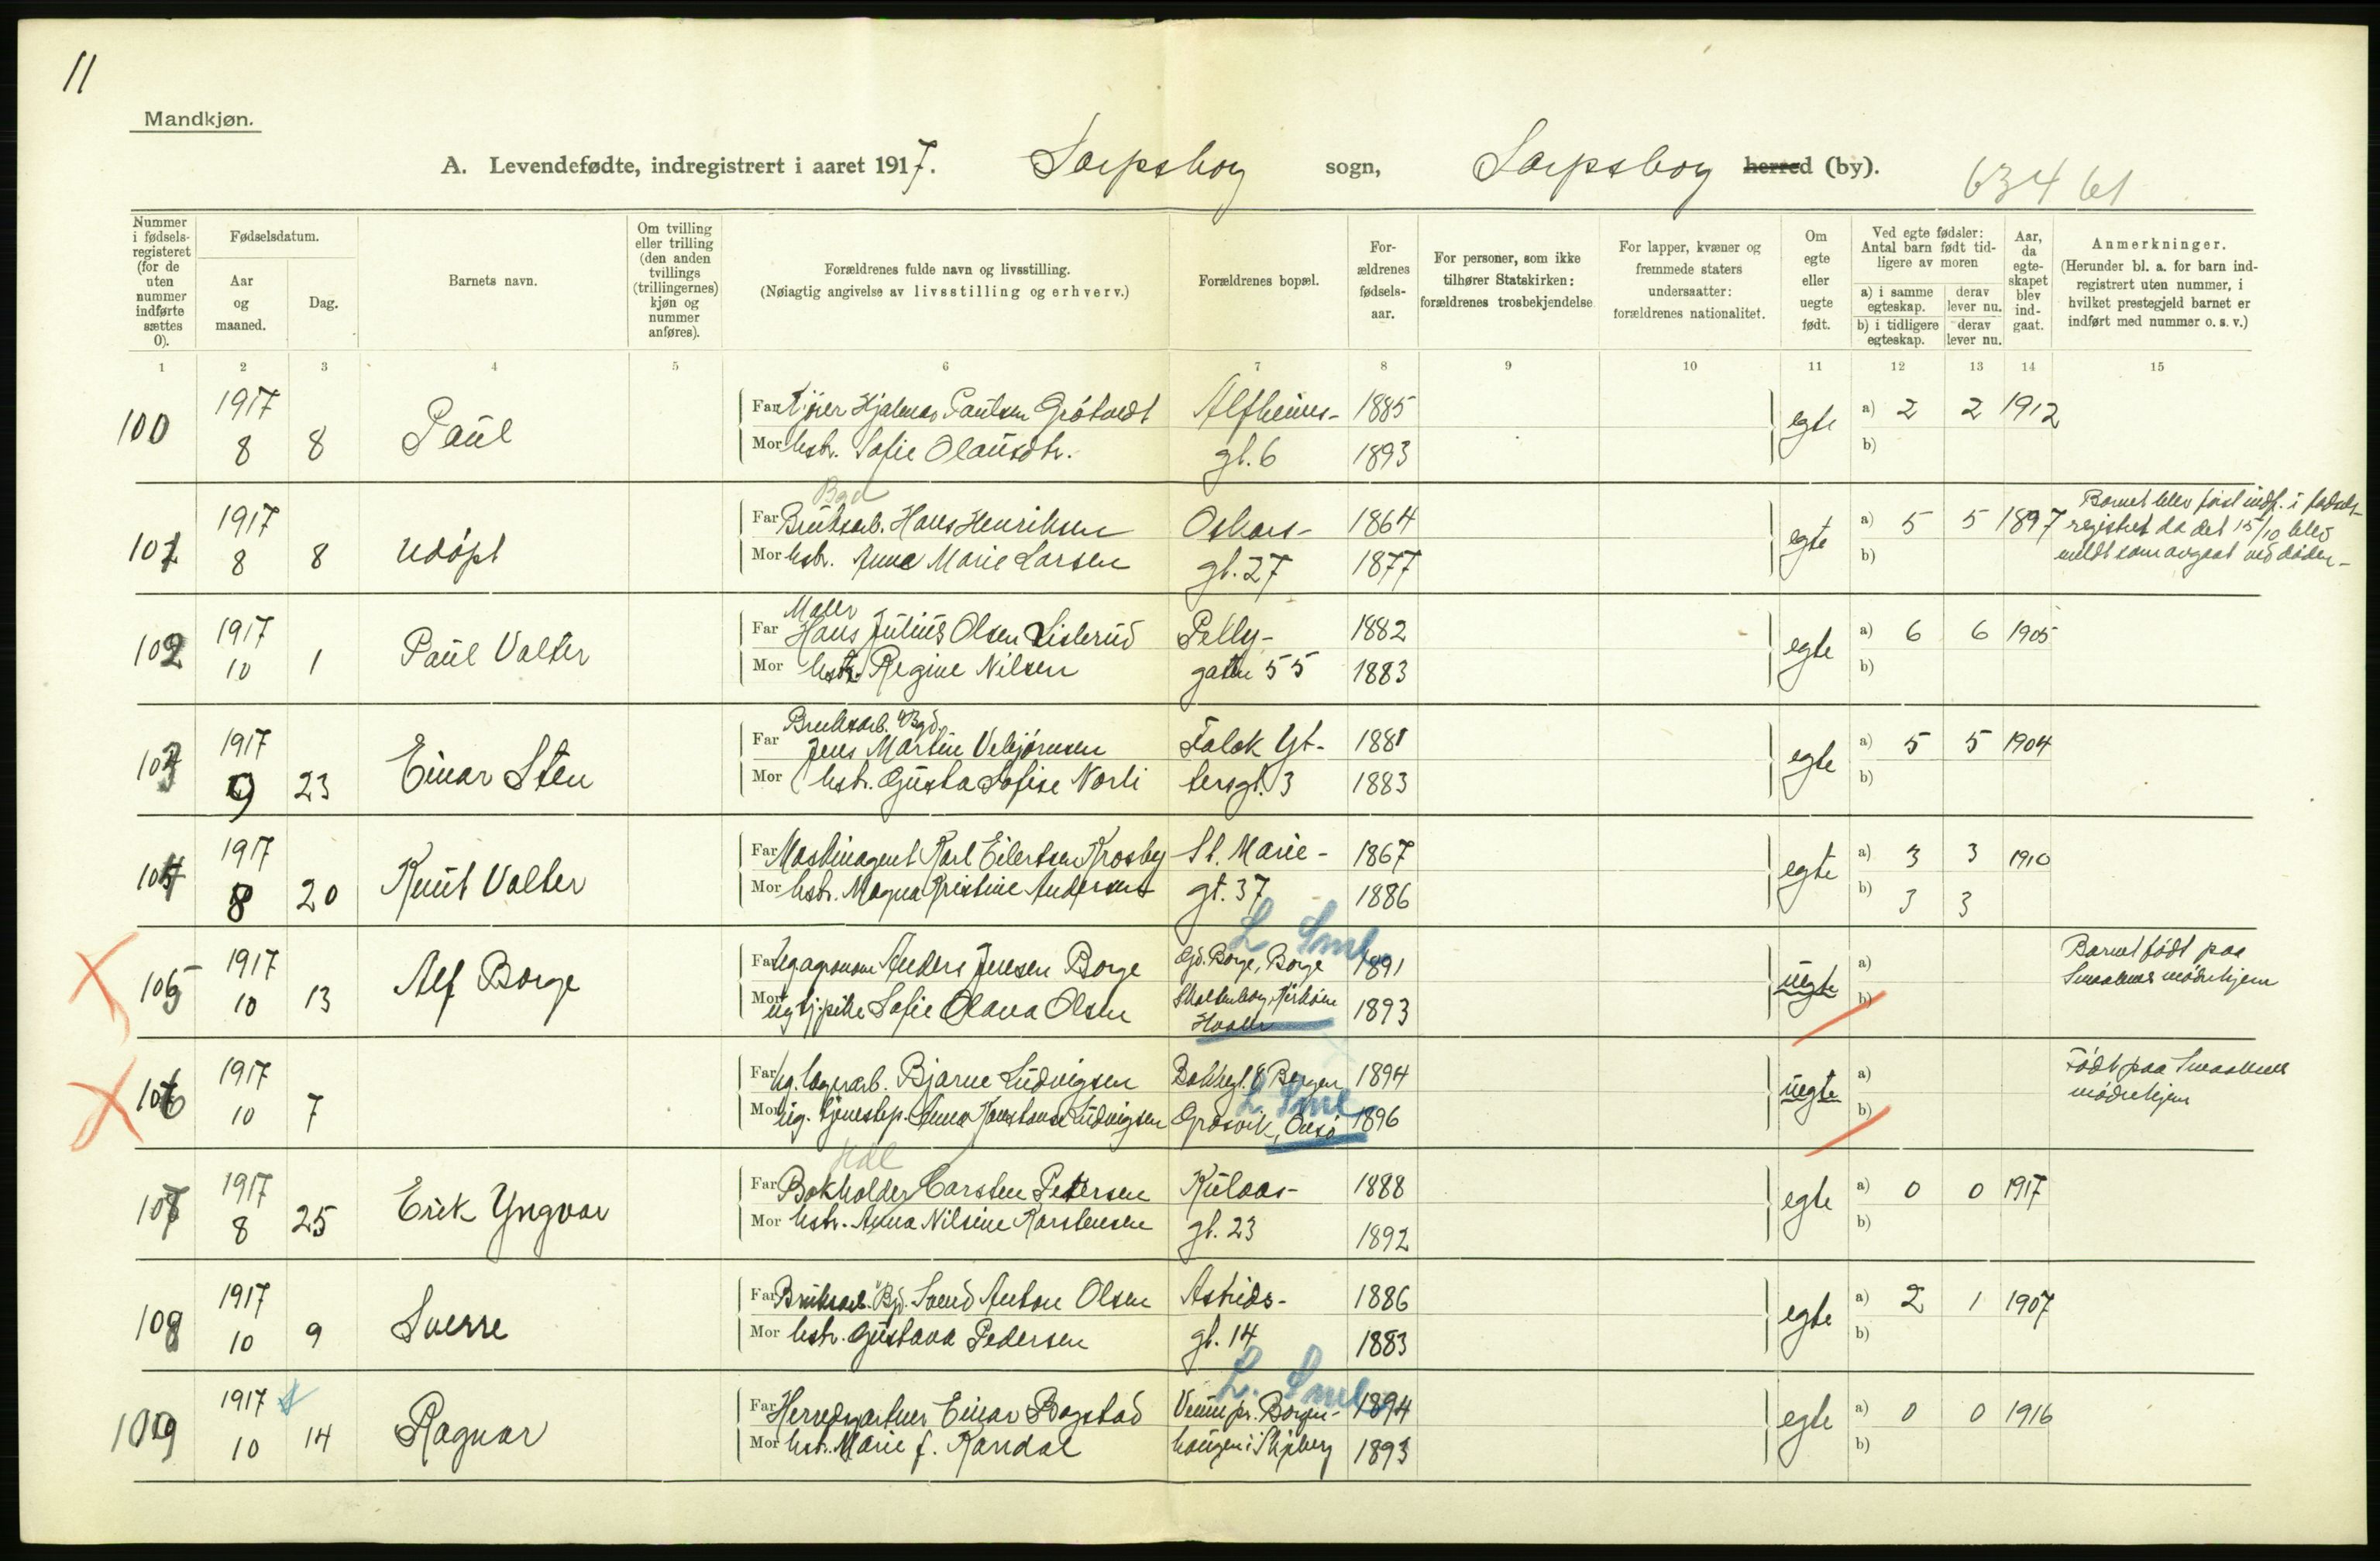 11
Mandkjøn.
A. Levendefødte, indregistrert i aaret 1917. Sarpsborg sogn, Sarpsborg herred (by). 634 61
Nummer i fødselsregisteret (for de uten nummer indførte sættes 0).
Fødselsdatum.
Aar og maaned.
Dag.
Barnets navn.
Om tvilling eller trilling (den anden tvillings (trillingernes) kjøn og nummer anføres).
Forældrenes fulde navn og livsstilling.
(Nøiagtig angivelse av livsstilling og erhverv.)
Forældrenes bopæl.
For-ældrenes fødsels-aar.
For personer, som ikke tilhører Statskirken: forældrenes trosbekjendelse
For lapper, kvæner og fremmede staters undersaatter: forældrenes nationalitet.
Om egte eller uegte født.
Ved egte fødsler: Antal barn født tid-ligere av moren
a) i samme egteskap. derav lever nu.
b) i tidligere egteskap. derav lever nu.
Aar, da egte-skapet blev ind-gaat.
Anmerkninger.
(Herunder bl. a. for barn ind-registrert uten nummer, i hvilket prestegjeld barnet er indført med nummer o. s. v.)
1 2 3 4 5 6 7 8 9 10 11 12 13 14 15
100 1917 8 8 Paul
Far Hjalmar Paulsen Grøtvedt Alfheims- 1885 egte a) 2 2 1912
Mor hstr. Sofie Olausdtr. gt. 6 1893 b)
101 1917 8 8 udøpt
Bgd
Far Bruksarb. Hans Henriksen Oskars- 1864 egte a) 5 5 1897
Mor hstr. Anna Marie Larsen gt. 27 1877 b)
Barnet blev først indf. i fødsels-
registret da det 15/10 blev
meldt som avgaat ved døden-
102 1917 10 1 Paul Valter
Maler
Far Hans Julius Olsen Listerud Pelly- 1882 egte a) 6 6 1905
Mor hstr. Regine Nilsen gaten 55 1883 b)
103 1917 9 23 Einar Sten
Bruksarb. Bgd
Far Jens Martin Vebjørnsen Falck Yt- 1881 egte a) 5 5 1904
Mor hstr. Gusta Sofise Norli tersgt. 3 1883 b)
104 1917 8 20 Knut Valter
Far Maskinagent Karl Eilertsen Krosby St. Marie- 1867 egte a) 3 3 1910
Mor hstr. Magna Kristine Andersen gt. 37 1886 b) 3 3
L. Sml
105 1917 10 13 Alf Borge
Far ug agronom Anders Jensen Borge Gd. Borge, Borge 1891 uegte a)
Mor ug tj.pike Sofie Olava Olsen Hvaler 1893 b)
Barnet født paa
Smaalenes mødrehjem
106 1917 10 7
Far ug. lagerarb. Bjarne Ludvigsen Bergen 1894 uegte a)
L. Sml
Mor ug. tjenestep. Anna Konstanse Ludvigsen Græsvik, Onsø 1896 b)
Født paa Smaalenes
mødrehjem
107 1917 8 25 Erik Yngvar
Hdl
Far Bokholder Carsten Petersen Kulaas- 1888 egte a) 0 0 1917
Mor hstr. Anna Nilsine Karstensen gt. 23 1892 b)
108 1917 10 9 Sverre
Far Bruksarb. Bgd. Svend Anton Olsen Astrids- 1886 egte a) 2 1 1907
Mor hstr. Gustava Pedersen gt. 14 1883 b)
L. Sml
109 1917 10 14 Ragnar
Far Herredgartner Einar Bogstad pr. Borgen- 1894 egte a) 0 0 1916
Mor hst. Marie f. Randal haugen i Skjeberg 1893 b)